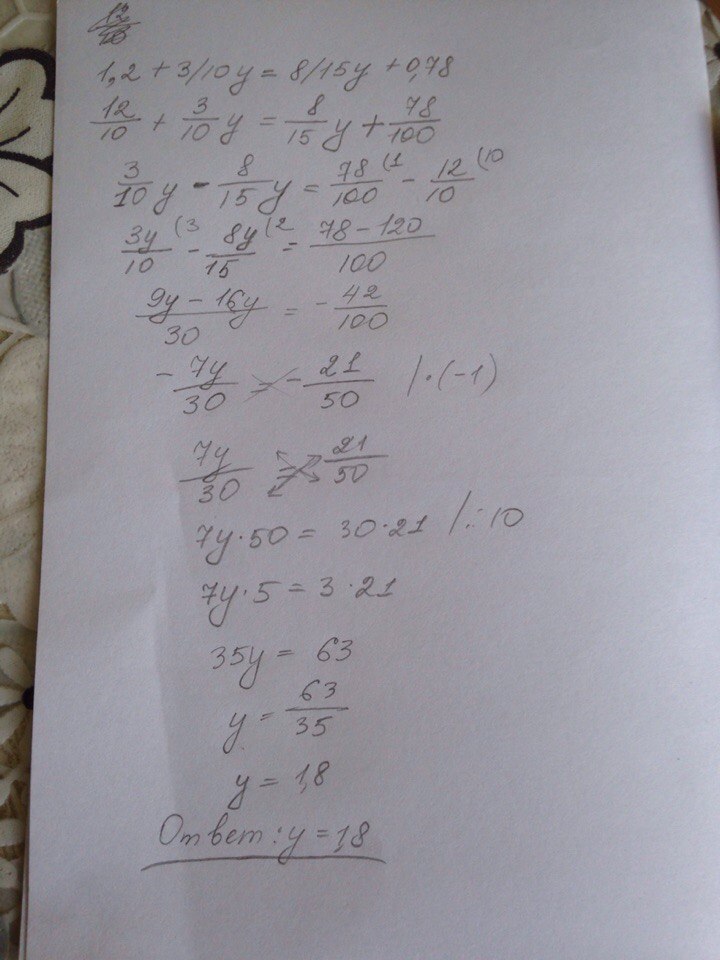 12/10
1,2 + 3/10y = 8/15y + 0,78
12/10 + 3/10 y = 8/15 y + 78/100
3/10 y - 8/15 y = 78/100 (1 - 12/10 (10
3y/10 (3 - 8y/15 (2 = 78 - 120/100
9y - 16y/30 = - 42/100
- 7y/30 = - 21/50 /·(-1)
7y/30 = 21/50
7y·50 = 30·21 /:10
7y·5 = 3·21
35y = 63
y = 63/35
y = 1,8
Ответ: y = 1,8